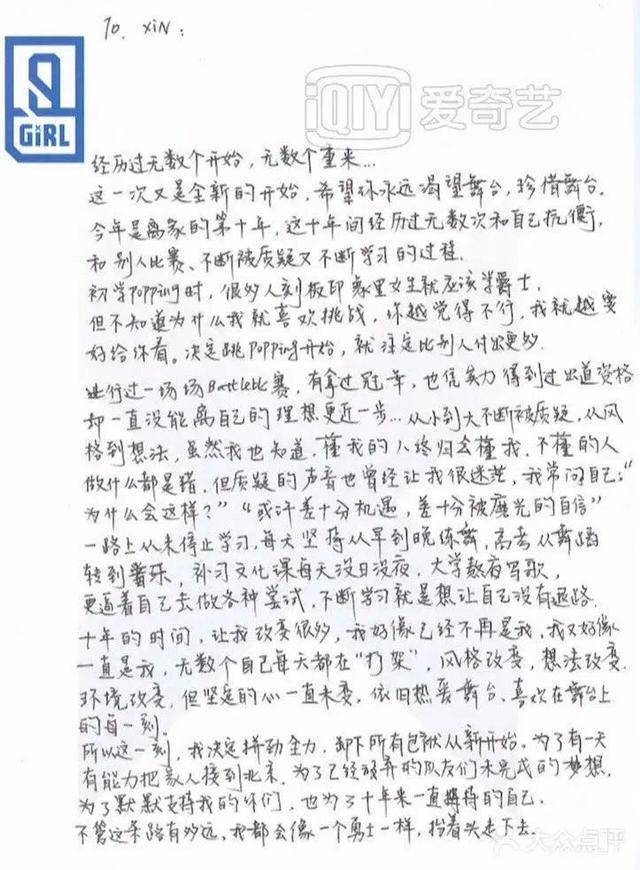 To. XIN:
9
GIRL
iQIYI 爱奇艺
经历过无数个开始，无数个重来...
这一次又是全新的开始，希望你永远渴望舞台，珍惜舞台.
今年是离家的第十年，这十年间经历过无数次和自己抗衡，
和别人比赛、不断被质疑又不断学习的过程.
初学Popping时，很多人刻板印象里女生就应该学爵士，
但不知道为什么我就喜欢挑战，你越觉得不行，我就越要
好给你看。决定跳Popping开始，就注定比别人付出更多.
进行过一场场Battle比赛，有拿过冠军，也凭实力得到过出道资格
却一直没能离自己的理想更近一步...从小到大不断被质疑，从风
格到想法，虽然我也知道，懂我的人终归会懂我，不懂的人
做什么都是错，但质疑的声音也曾经让我很迷茫，我常问自己："
为什么会这样？""或许差十分机遇，差十分被磨光的自信"
一路上从未停止学习，每天坚持从早到晚练舞，高考从舞蹈
转到音乐，补习文化课每天没日没夜，大学熬夜写歌，
更逼着自己去做各种尝试，不断学习就是想让自己没有退路.
十年的时间，让我改变很多，我好像已经不再是我，我又好像
一直是我，无数个自己每天都在"打架"，风格改变，想法改变.
环境改变，但坚定的心一直未变，依旧热爱舞台、喜欢在舞台上
的每一刻.
所以这一刻，我决定拼劲全力，卸下所有包袱从新开始。为了有一天
有能力把家人接到北京、为了已经放弃的队友们未完成的梦想，
为了默默支持我的你们，也为了十年来一直坚持的自己.
不管这条路有多远，我都会像一个勇士一样，抬着头走下去.
大众点评